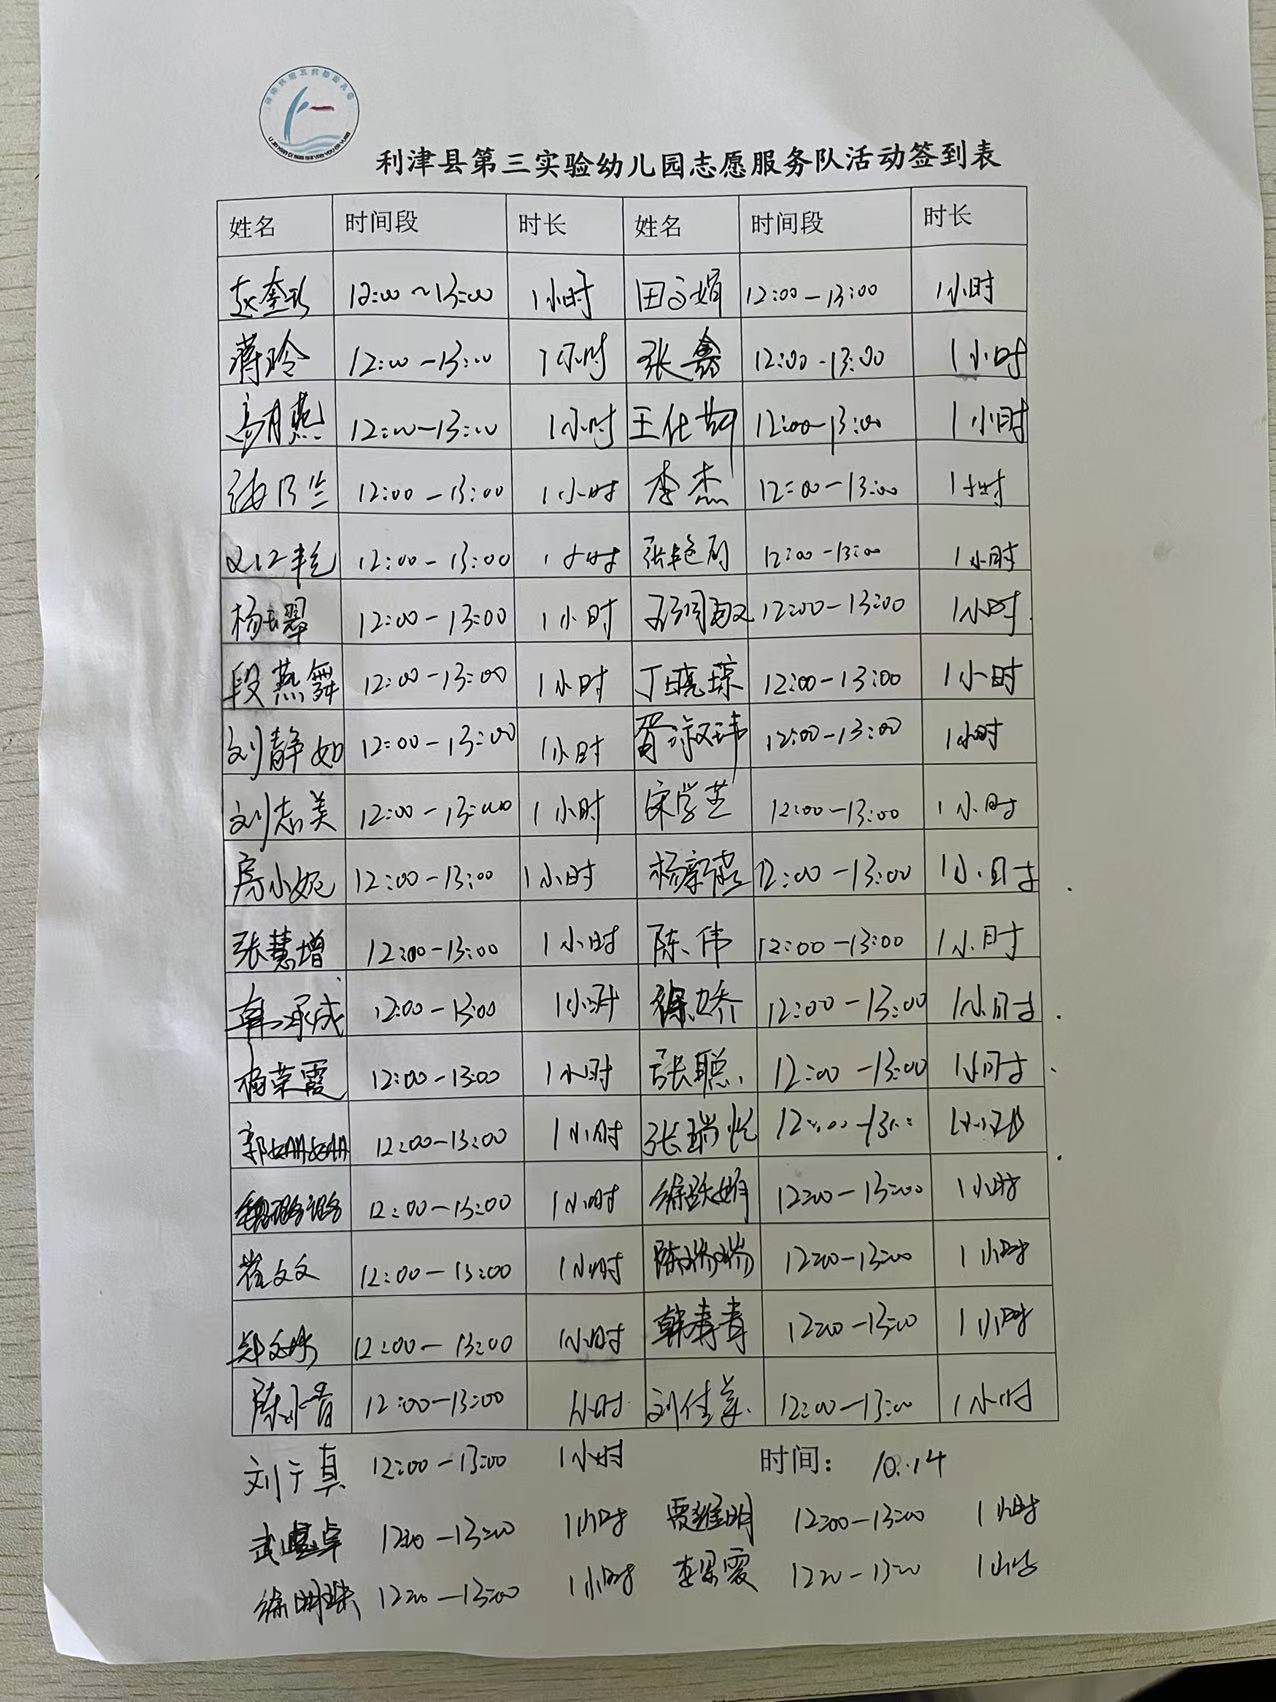 利津县第三实验幼儿园志愿服务队活动签到表
姓名 时间段 时长 姓名 时间段 时长
赵奎珍 12:00~13:00 1小时 田文娟 12:00-13:00 1小时
蒋玲 12:00-13:00 1小时 张鑫 12:00-13:00 1小时
高月燕 12:00-13:00 1小时 12:00-13:00 1小时
12:00-13:00 1小时 李杰 12:00-13:00 1小时
12:00-13:00 1小时 12:00-13:00 1小时
杨玉翠 12:00-13:00 1小时 12:00-13:00 1小时
段燕舞 12:00-13:00 1小时 丁晓琼 12:00-13:00 1小时
刘静如 12:00-13:00 1小时 胥淑玮 12:00-13:00 1小时
刘志美 12:00-13:00 1小时 宋学芝 12:00-13:00 1小时
房小妮 12:00-13:00 1小时 杨新燕 12:00-13:00 1小时
张慧增 12:00-13:00 1小时 陈伟 12:00-13:00 1小时
12:00-13:00 1小时 徐娇 12:00-13:00 1小时
杨荣霞 12:00-13:00 1小时 张聪 12:00-13:00 1小时
郭姗姗 12:00-13:00 1小时 张瑞悦 12:00-13:00 1小时
12:00-13:00 1小时 徐跃娟 12:00-13:00 1小时
崔文文 12:00-13:00 1小时 陈瑞瑞 12:00-13:00 1小时
12:00-13:00 1小时 韩青青 12:00-13:00 1小时
12:00-13:00 1小时 12:00-13:00 1小时
刘宁真 12:00-13:00 1小时 时间： 10.14
12:00-13:00 1小时 贾维明 12:00-13:00 1小时
徐明珠 12:00-13:00 1小时 李梁霞 12:00-13:00 1小时